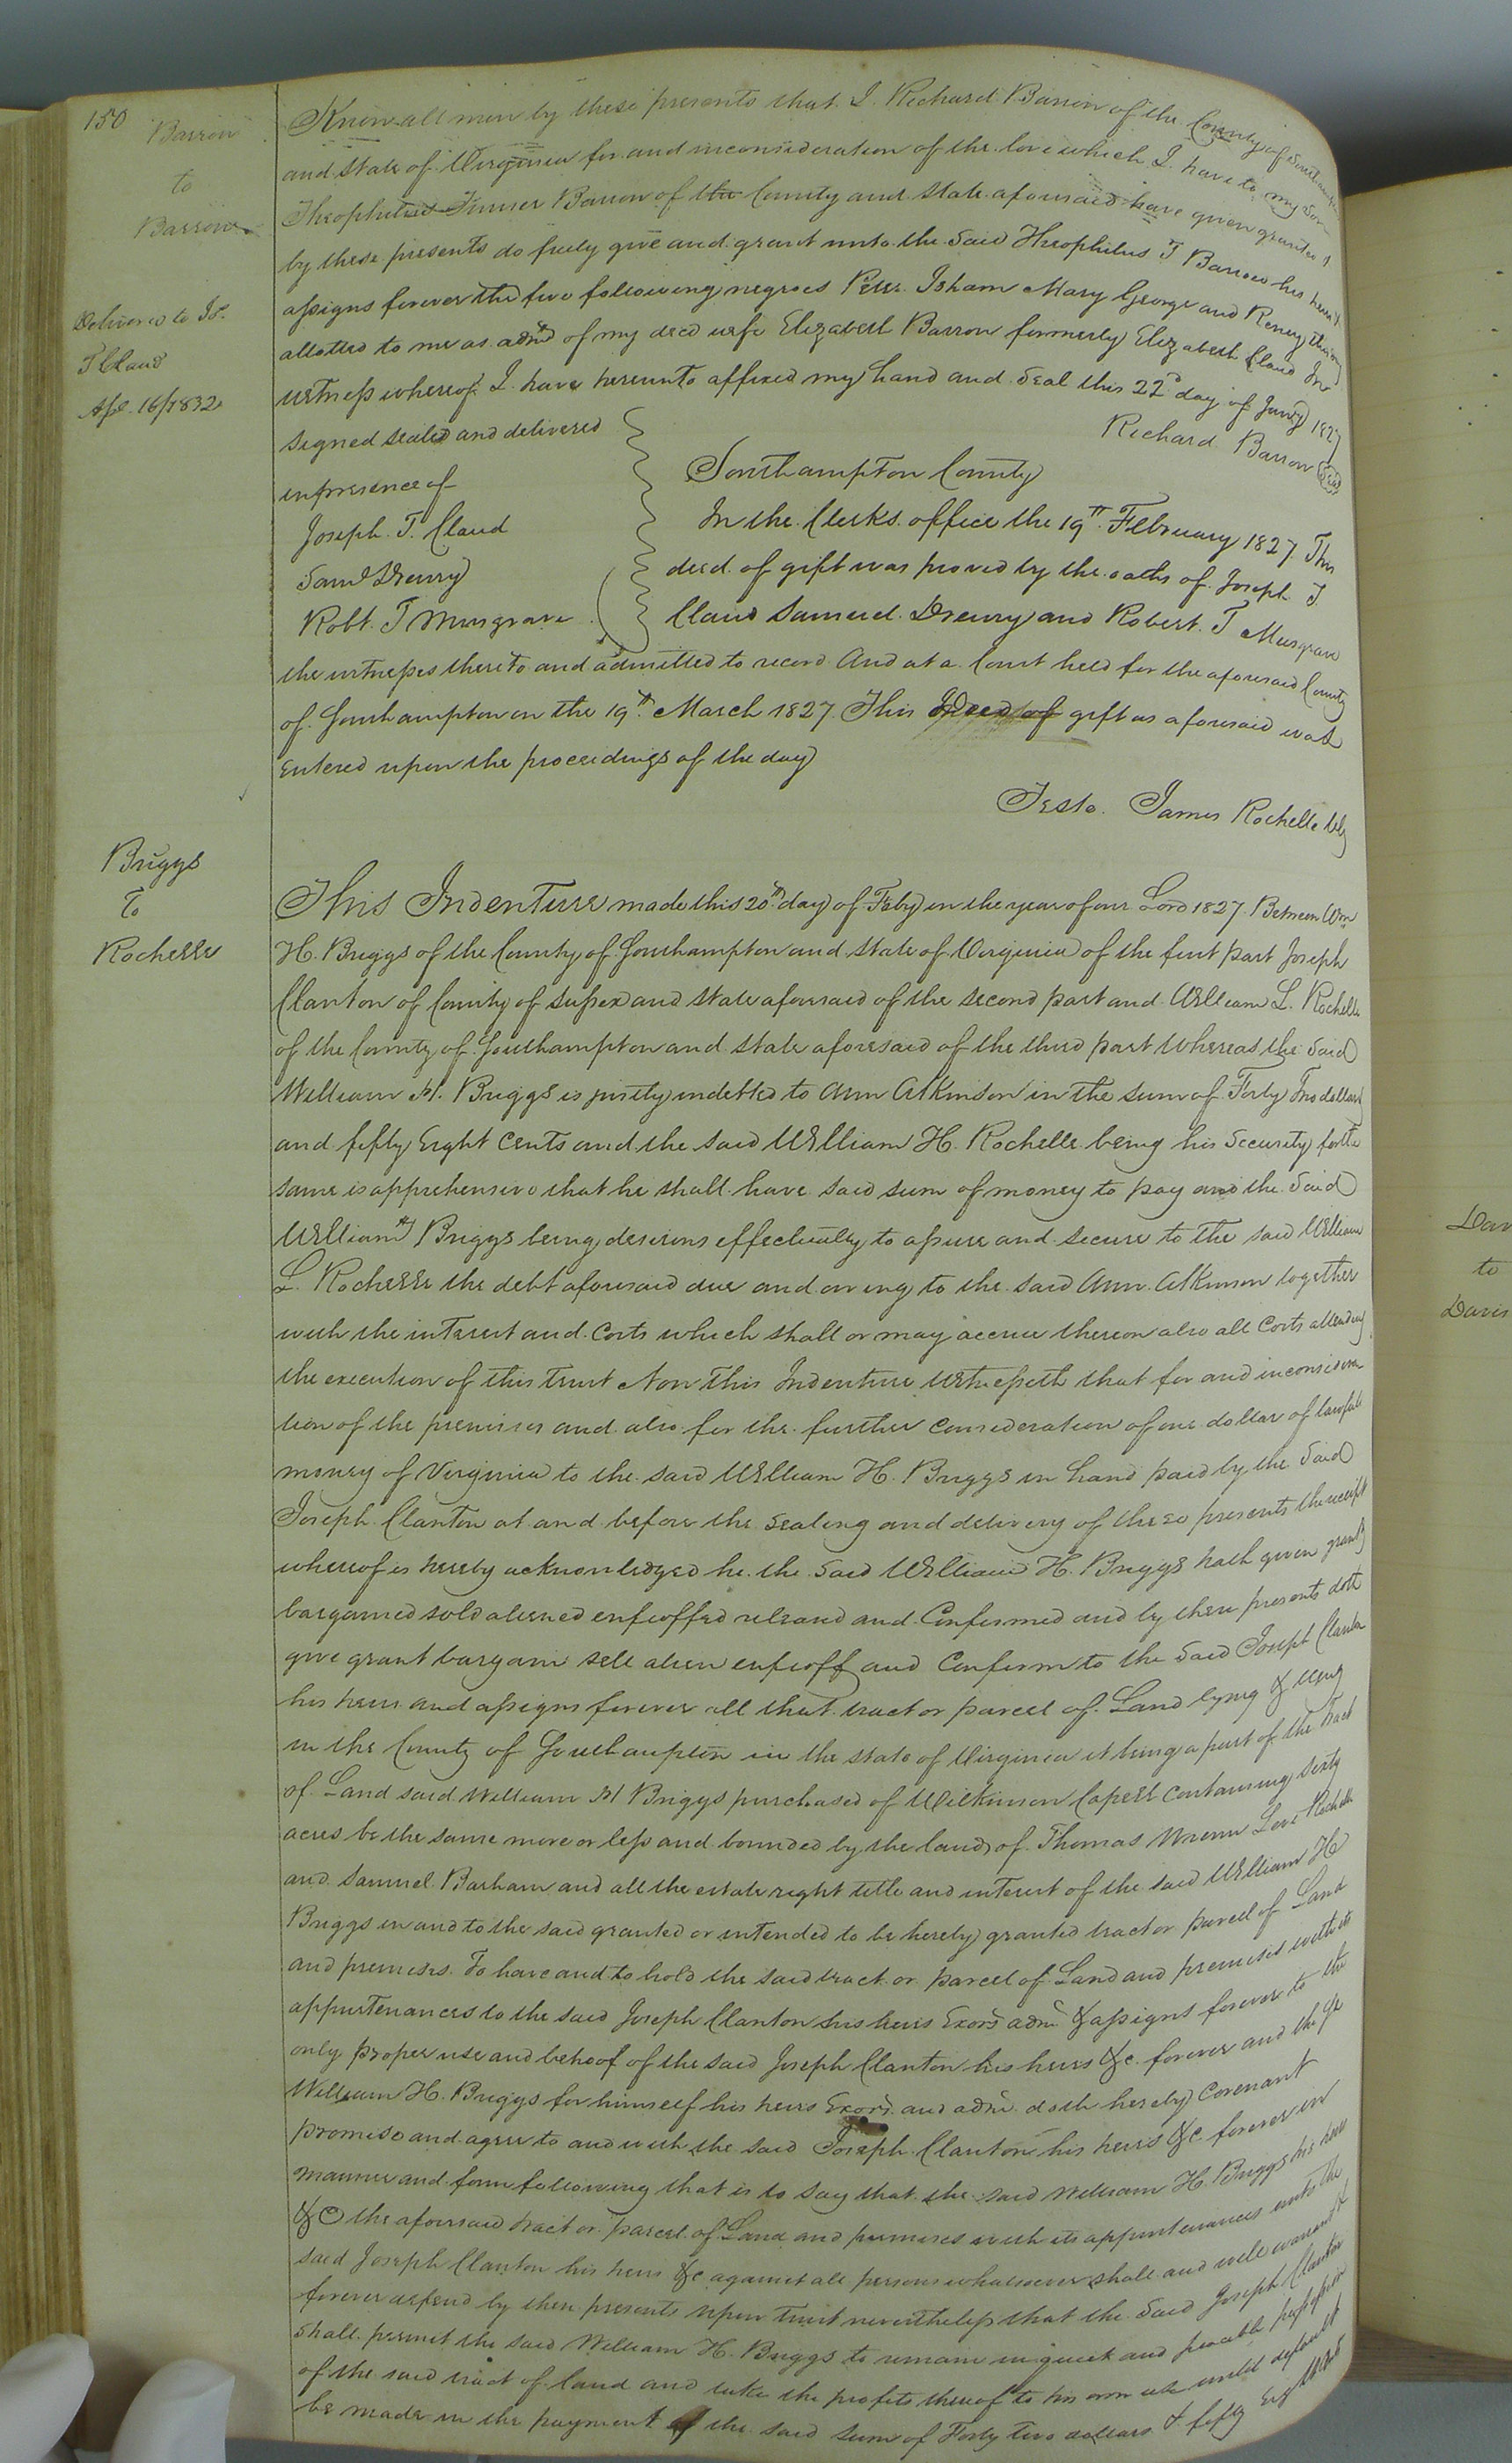 150
Barrow
to
Barrow
Delivered to Jo.
T Claud
Apl. 16/1832
Know all men by these presents that I Richard Barrow of the County of Southampton
and State of Virginia for and in consideration of the love which I have to my son
Theophilus Turner Barrow of the County and State aforesaid have given granted &
by these presents do freely give and grant unto the said Theophilus T Barrow his heirs &
assigns forever the five following negroes Peter Isham Mary George and
allotted to me as admr of my decd wife Elizabeth Barrow formerly Elizabeth Claud In
witness whereof I have hereunto affixed my hand and seal this 22d day of Jany 1827
Richard Barrow Seal
signed sealed and delivered
in presence of
Joseph T. Claud
Saml Drewry
Robt. T Musgrave
Southampton County
In the Clerks office the 19th February 1827 This
deed of gift was proved by the oaths of Joseph T
Claud Samuel Drewry and Robert T Musgrave
the witnesses thereto and admitted to record And at a Court held for the aforesaid County
of Southampton on the 19th March 1827 This Deed of gift as aforesaid was
entered upon the proceedings of the day
Teste. James Rochelle Clk
Briggs
To
Rochelle
This Indenture made this 20th day of Feby in the year of our Lord 1827 Between Wm
H. Briggs of the County of Southampton and State of Virginia of the first part Joseph
Clanton of County of Sussex and State aforesaid of the second part and William L. Rochelle
of the County of Southampton and State aforesaid of the third part Whereas the said
William H. Briggs is justly indebted to Ann Atkinson in the sum of Forty Two dollars
and fifty Eight Cents and the said William H. Rochelle being his Security for the
same is apprehensive that he shall have said sum of money to pay and the said
William H Briggs being desirous effectually to assure and secure to the said William
L. Rochelle the debt aforesaid due and owing to the said Ann Atkinson together
with the interest and Costs which shall or may accrue thereon also all Costs attending
the execution of this trust Now This Indenture Witnesseth that for and in considera
tion of the premises and also for the further consideration of one dollar of lawfull
money of Virginia to the said William H. Briggs in hand paid by the said
Joseph Clanton at and before the sealing and delivery of these presents the receipt
whereof is hereby acknowledged he the said William H. Briggs hath given granted
bargained sold aliened enfeoffed released and Confirmed and by these presents doth
give grant bargain sell alien enfeoff and Confirm to the said Joseph Clanton
his heirs and assigns forever all that tract or parcel of Land lying & being
in the County of Southampton in the State of Virginia it being a part of the tract
of Land said William H Briggs purchased of Wilkinson Capell Containing sixty
acres be the same more or less and bounded by the lands of Thomas Wrenn Levi Rochelle
and Samuel Barham and all the estate right title and interest of the said William H
Briggs in and to the said granted or intended to be hereby granted tract or parcel of Land
and premises. To have and to hold the said tract or parcel of Land and premises with its
appurtenances to the said Joseph Clanton his heirs Exors admr & assigns forever to the
only proper use and behoof of the said Joseph Clanton his heirs &c. forever and the sd
William H. Briggs for himself his heirs Exors. and admr. doth hereby Covenant
promise and agree to and with the said Joseph Clanton his heirs &c forever in
manner and form following that is to say that the said William H. Briggs his heirs
&c the aforesaid tract or parcel of Land and premises with its appurtenances unto the
said Joseph Clanton his heirs &c against all persons whatsoever shall and will warrant &
forever defend by these presents upon trust nevertheless that the said Joseph Clanton
shall permit the said William H. Briggs to remain in quiet and peaceable possession
of the said tract of land and take the profits thereof to his own use until default
be made in the payment of the said sum of Forty two dollars & fifty Eight Cents
Dav
to
Davis